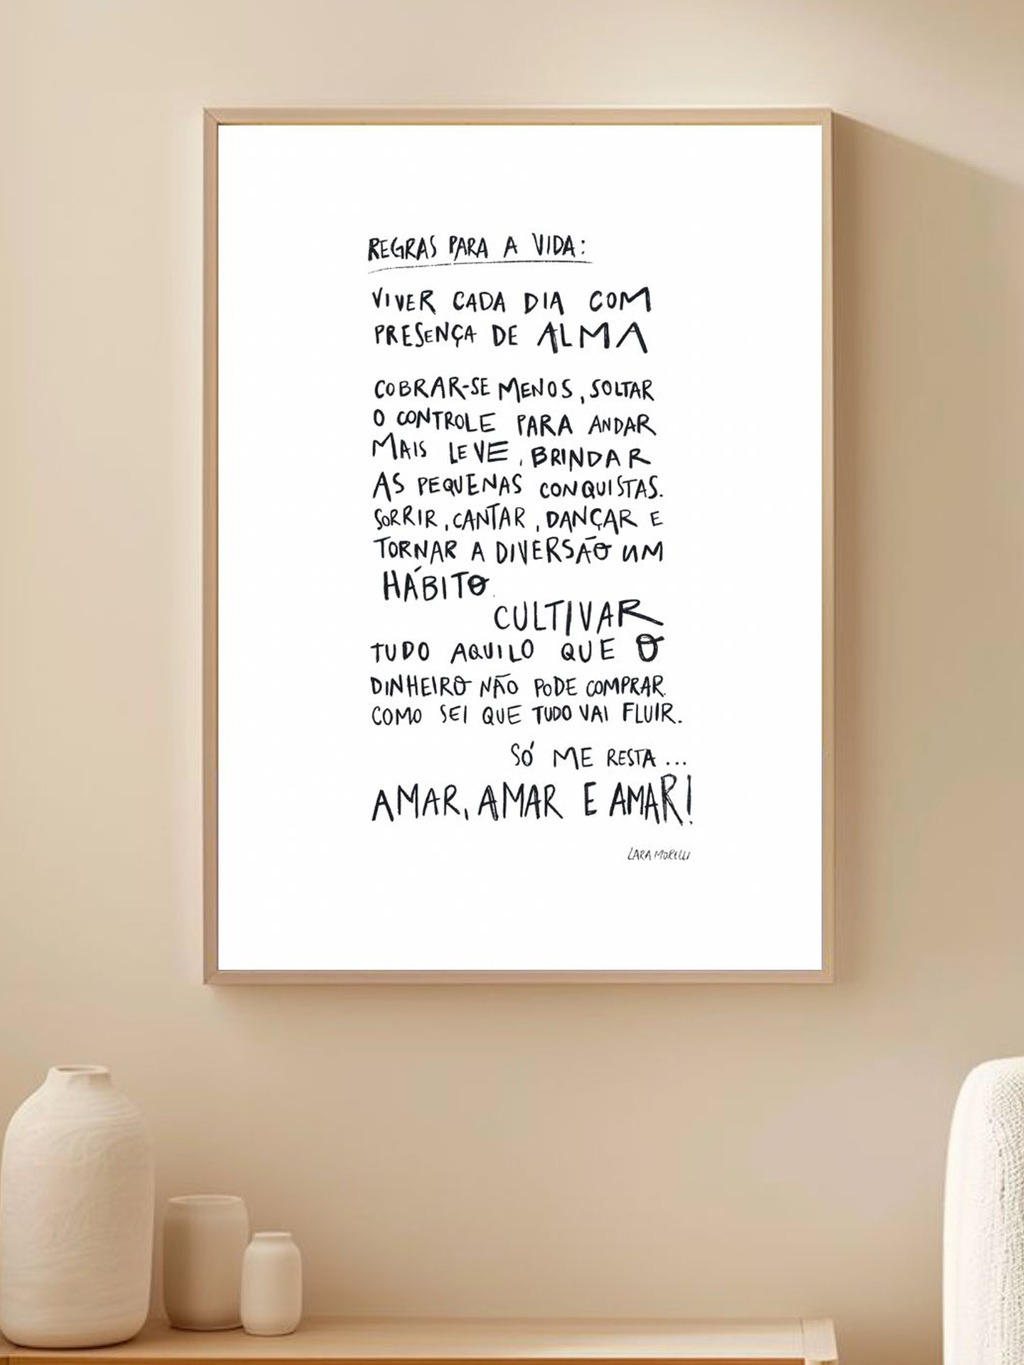 REGRAS PARA A VIDA:
VIVER CADA DIA COM
PRESENÇA DE ALMA
COBRAR-SE MENOS, SOLTAR
O CONTROLE PARA ANDAR
MAIS LEVE, BRINDAR
AS PEQUENAS CONQUISTAS.
SORRIR, CANTAR, DANÇAR E
TORNAR A DIVERSÃO UM
HÁBITO.
CULTIVAR
TUDO AQUILO QUE O
DINHEIRO NÃO PODE COMPRAR.
COMO SEI QUE TUDO VAI FLUIR.
SÓ ME RESTA...
AMAR, AMAR E AMAR!
LARA MORELLI